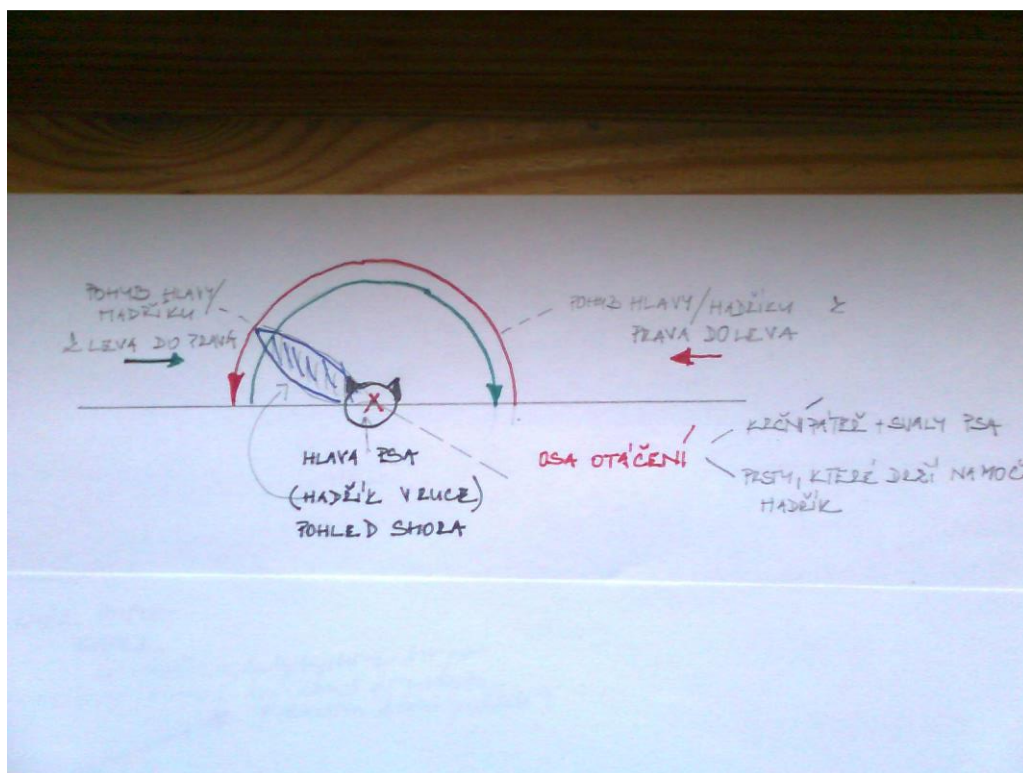 POHYB HLAVY/
HADŘÍKU
Z LEVA DO PRAVA
POHYB HLAVY/HADŘÍKU Z
PRAVA DO LEVA
HLAVA PSA
(HADŘÍK V RUCE)
POHLED SHORA
OSA OTÁČENÍ
KRČNÍ PÁTEŘ + SVALY PSA
PRSTY, KTERÉ DRŽÍ NAMOČ
HADŘÍK